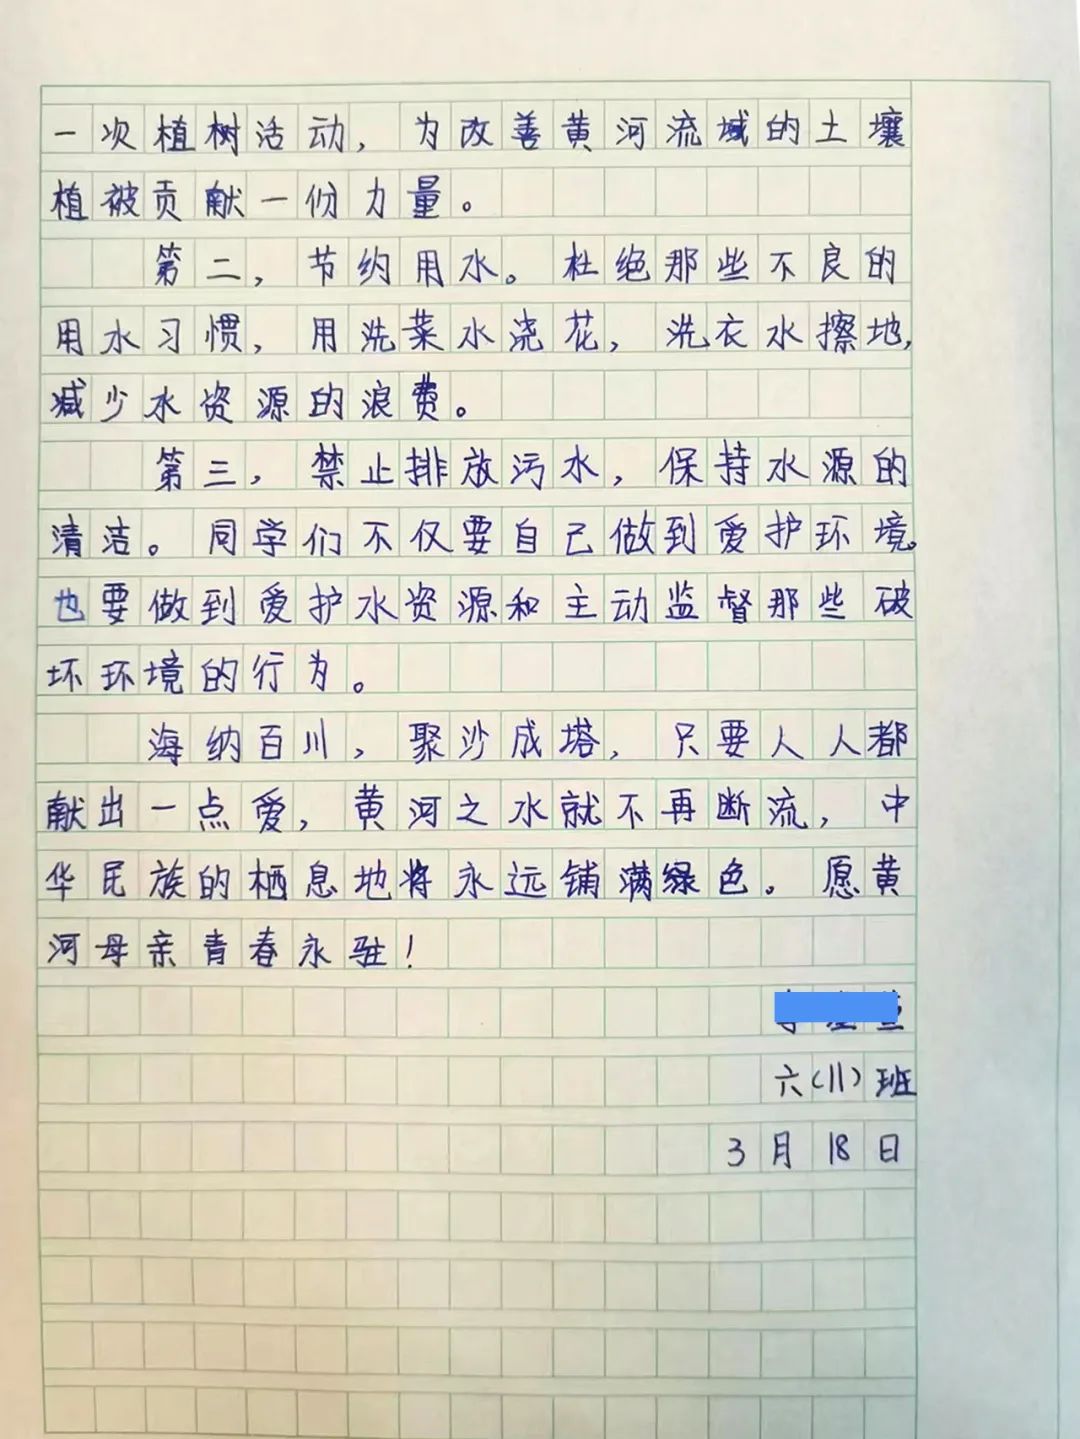 一次植树活动，为改善黄河流域的土壤
植被贡献一份力量。
第二，节约用水。杜绝那些不良的
用水习惯，用洗菜水浇花，洗衣水擦地，
减少水资源的浪费。
第三，禁止排放污水，保持水源的
清洁。同学们不仅要自己做到爱护环境。
也要做到爱护水资源和主动监督那些破
坏环境的行为。
海纳百川，聚沙成塔，只要人人都
献出一点爱，黄河之水就不再断流，中
华民族的栖息地将永远铺满绿色。愿黄
河母亲青春永驻！
六（11）班
3月18日